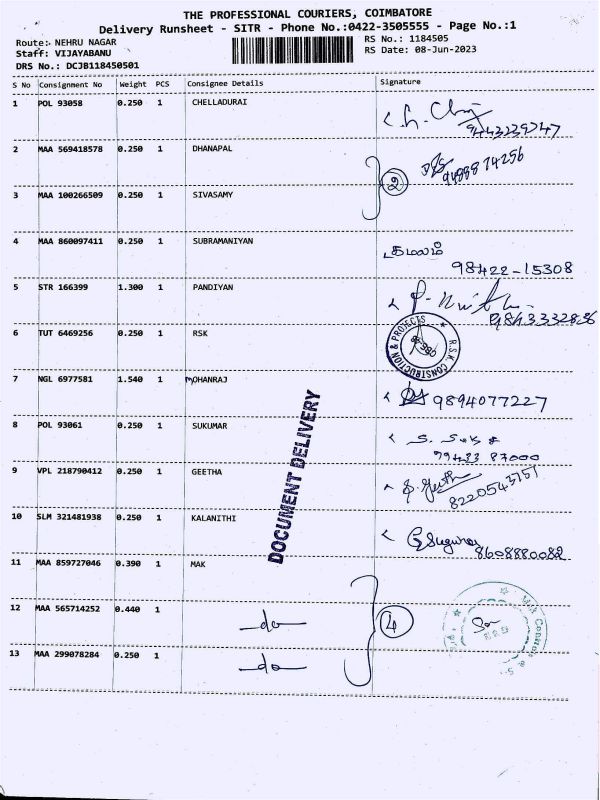 THE PROFESSIONAL COURIERS, COIMBATORE
Delivery Runsheet - SITR - Phone No.:0422-3505555 - Page No.:1
Route:- NEHRU NAGAR RS No.: 1184505
Staff: VIJAYABANU RS Date: 08-Jun-2023
DRS No.: DCJB118450501
S No Consignment No Weight PCS Consignee Details Signature
1 POL 93058 0.250 1 CHELLADURAI
9443239747
2 MAA 569418578 0.250 1 DHANAPAL
2
3 MAA 100266509 0.250 1 SIVASAMY
4 MAA 860097411 0.250 1 SUBRAMANIYAN கமலம்
98422-15308
5 STR 166399 1.300 1 PANDIYAN
9843332836
6 TUT 6469256 0.250 1 RSK R.S.K. CONSTRUCTION & PROJECTS
7 NGL 6977581 1.540 1 MOHANRAJ 9894077227
8 POL 93061 0.250 1 SUKUMAR
99433 87000
9 VPL 218790412 0.250 1 GEETHA
8220543757
10 SLM 321481938 0.250 1 KALANITHI
8608880082
DOCUMENT DELIVERY
11 MAA 859727046 0.390 1 MAK
12 MAA 565714252 0.440 1 do 4
13 MAA 299078284 0.250 1 do